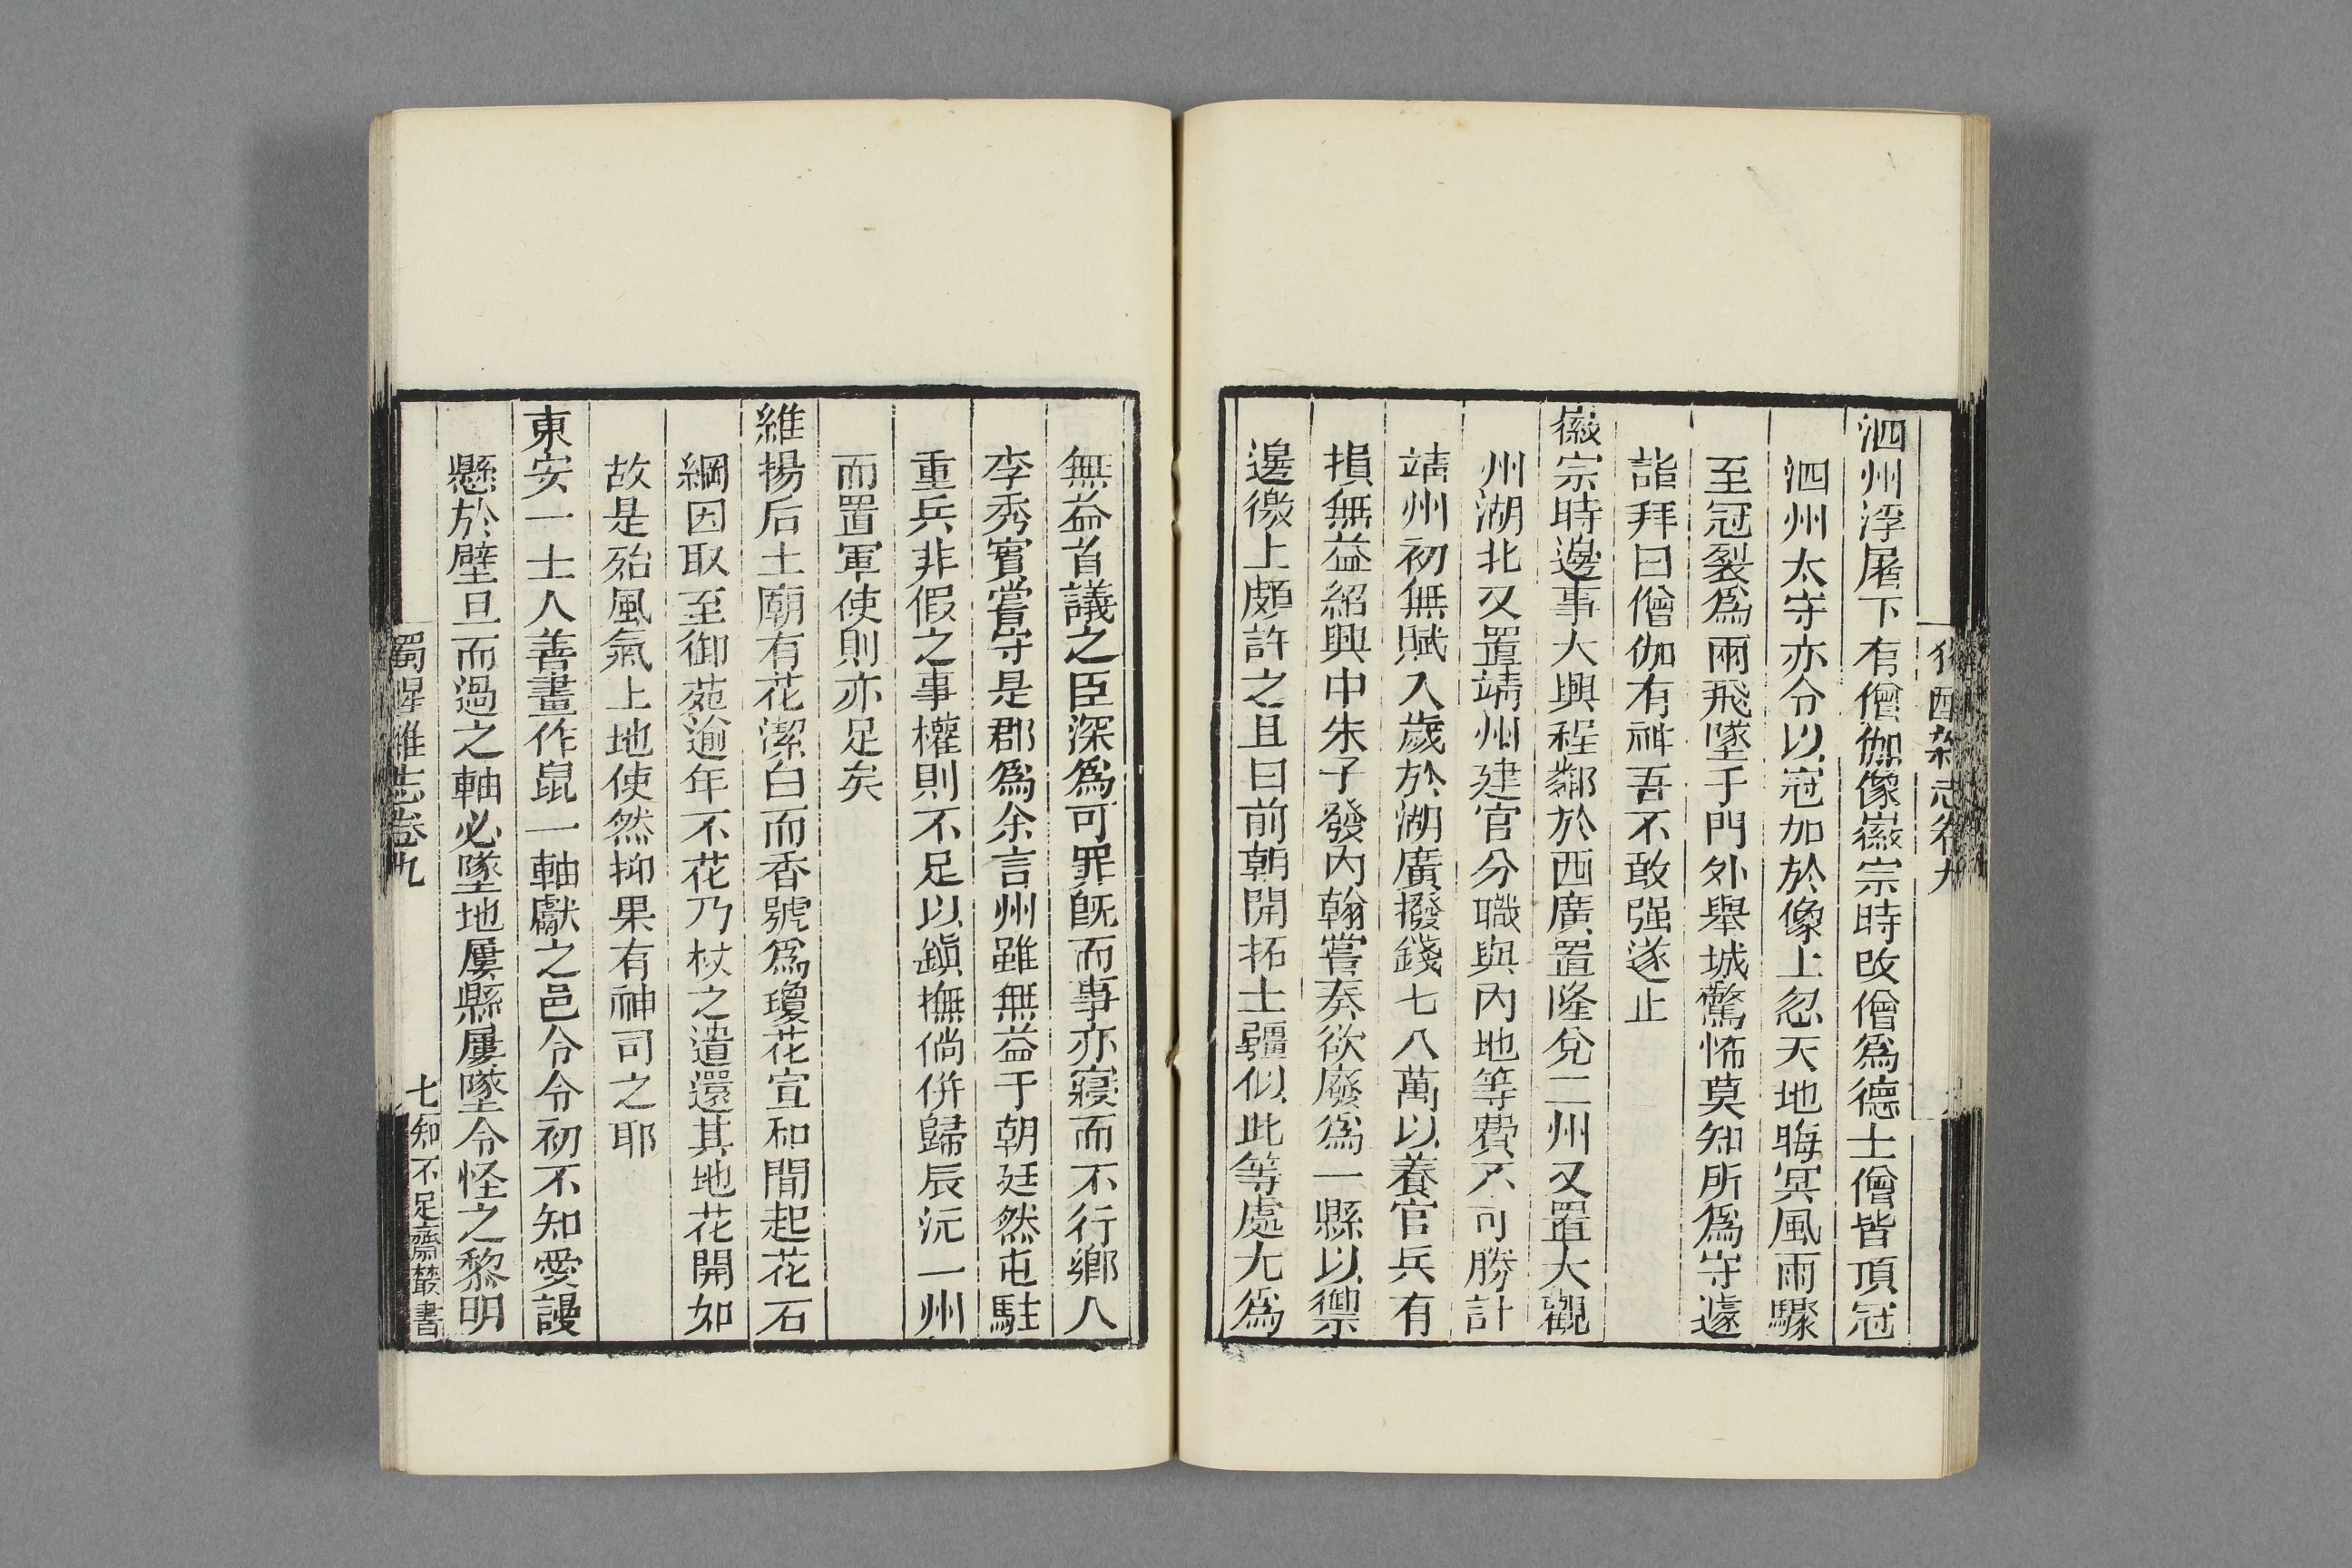 獨醒雜志卷九
泗州浮屠下有僧伽像徽宗時改僧爲德士僧皆頂冠
泗州太守亦令以冠加於像上忽天地晦冥風雨驟
至冠裂爲兩飛墜于門外舉城驚怖莫知所爲守遽
詣拜曰僧伽有神吾不敢强遂止
徽宗時邊事大興程鄰於西廣置隆兌二州又置大觀
州湖北又置靖州建官分職與內地等費不可勝計
靖州初無賦入歲於湖廣撥錢七八萬以養官兵有
損無益紹興中朱子發內翰嘗奏欲廢爲一縣以禦
邊徼上頗許之且曰前朝開拓土疆似此等處尤爲
無益首議之臣深爲可罪旣而事亦寢而不行鄉人
李秀實嘗守是郡爲余言州雖無益于朝廷然屯駐
重兵非假之事權則不足以鎭撫倘併歸辰沅一州
而置軍使則亦足矣
維揚后土廟有花潔白而香號爲瓊花宣和間起花石
綱因取至御苑逾年不花乃杖之遣還其地花開如
故是殆風氣上地使然抑果有神司之耶
東安一士人善畫作鼠一軸獻之邑令令初不知愛謾
懸於壁旦而過之軸必墜地屢縣屢墜令怪之黎明
獨醒雜志卷九
七
知不足齋叢書